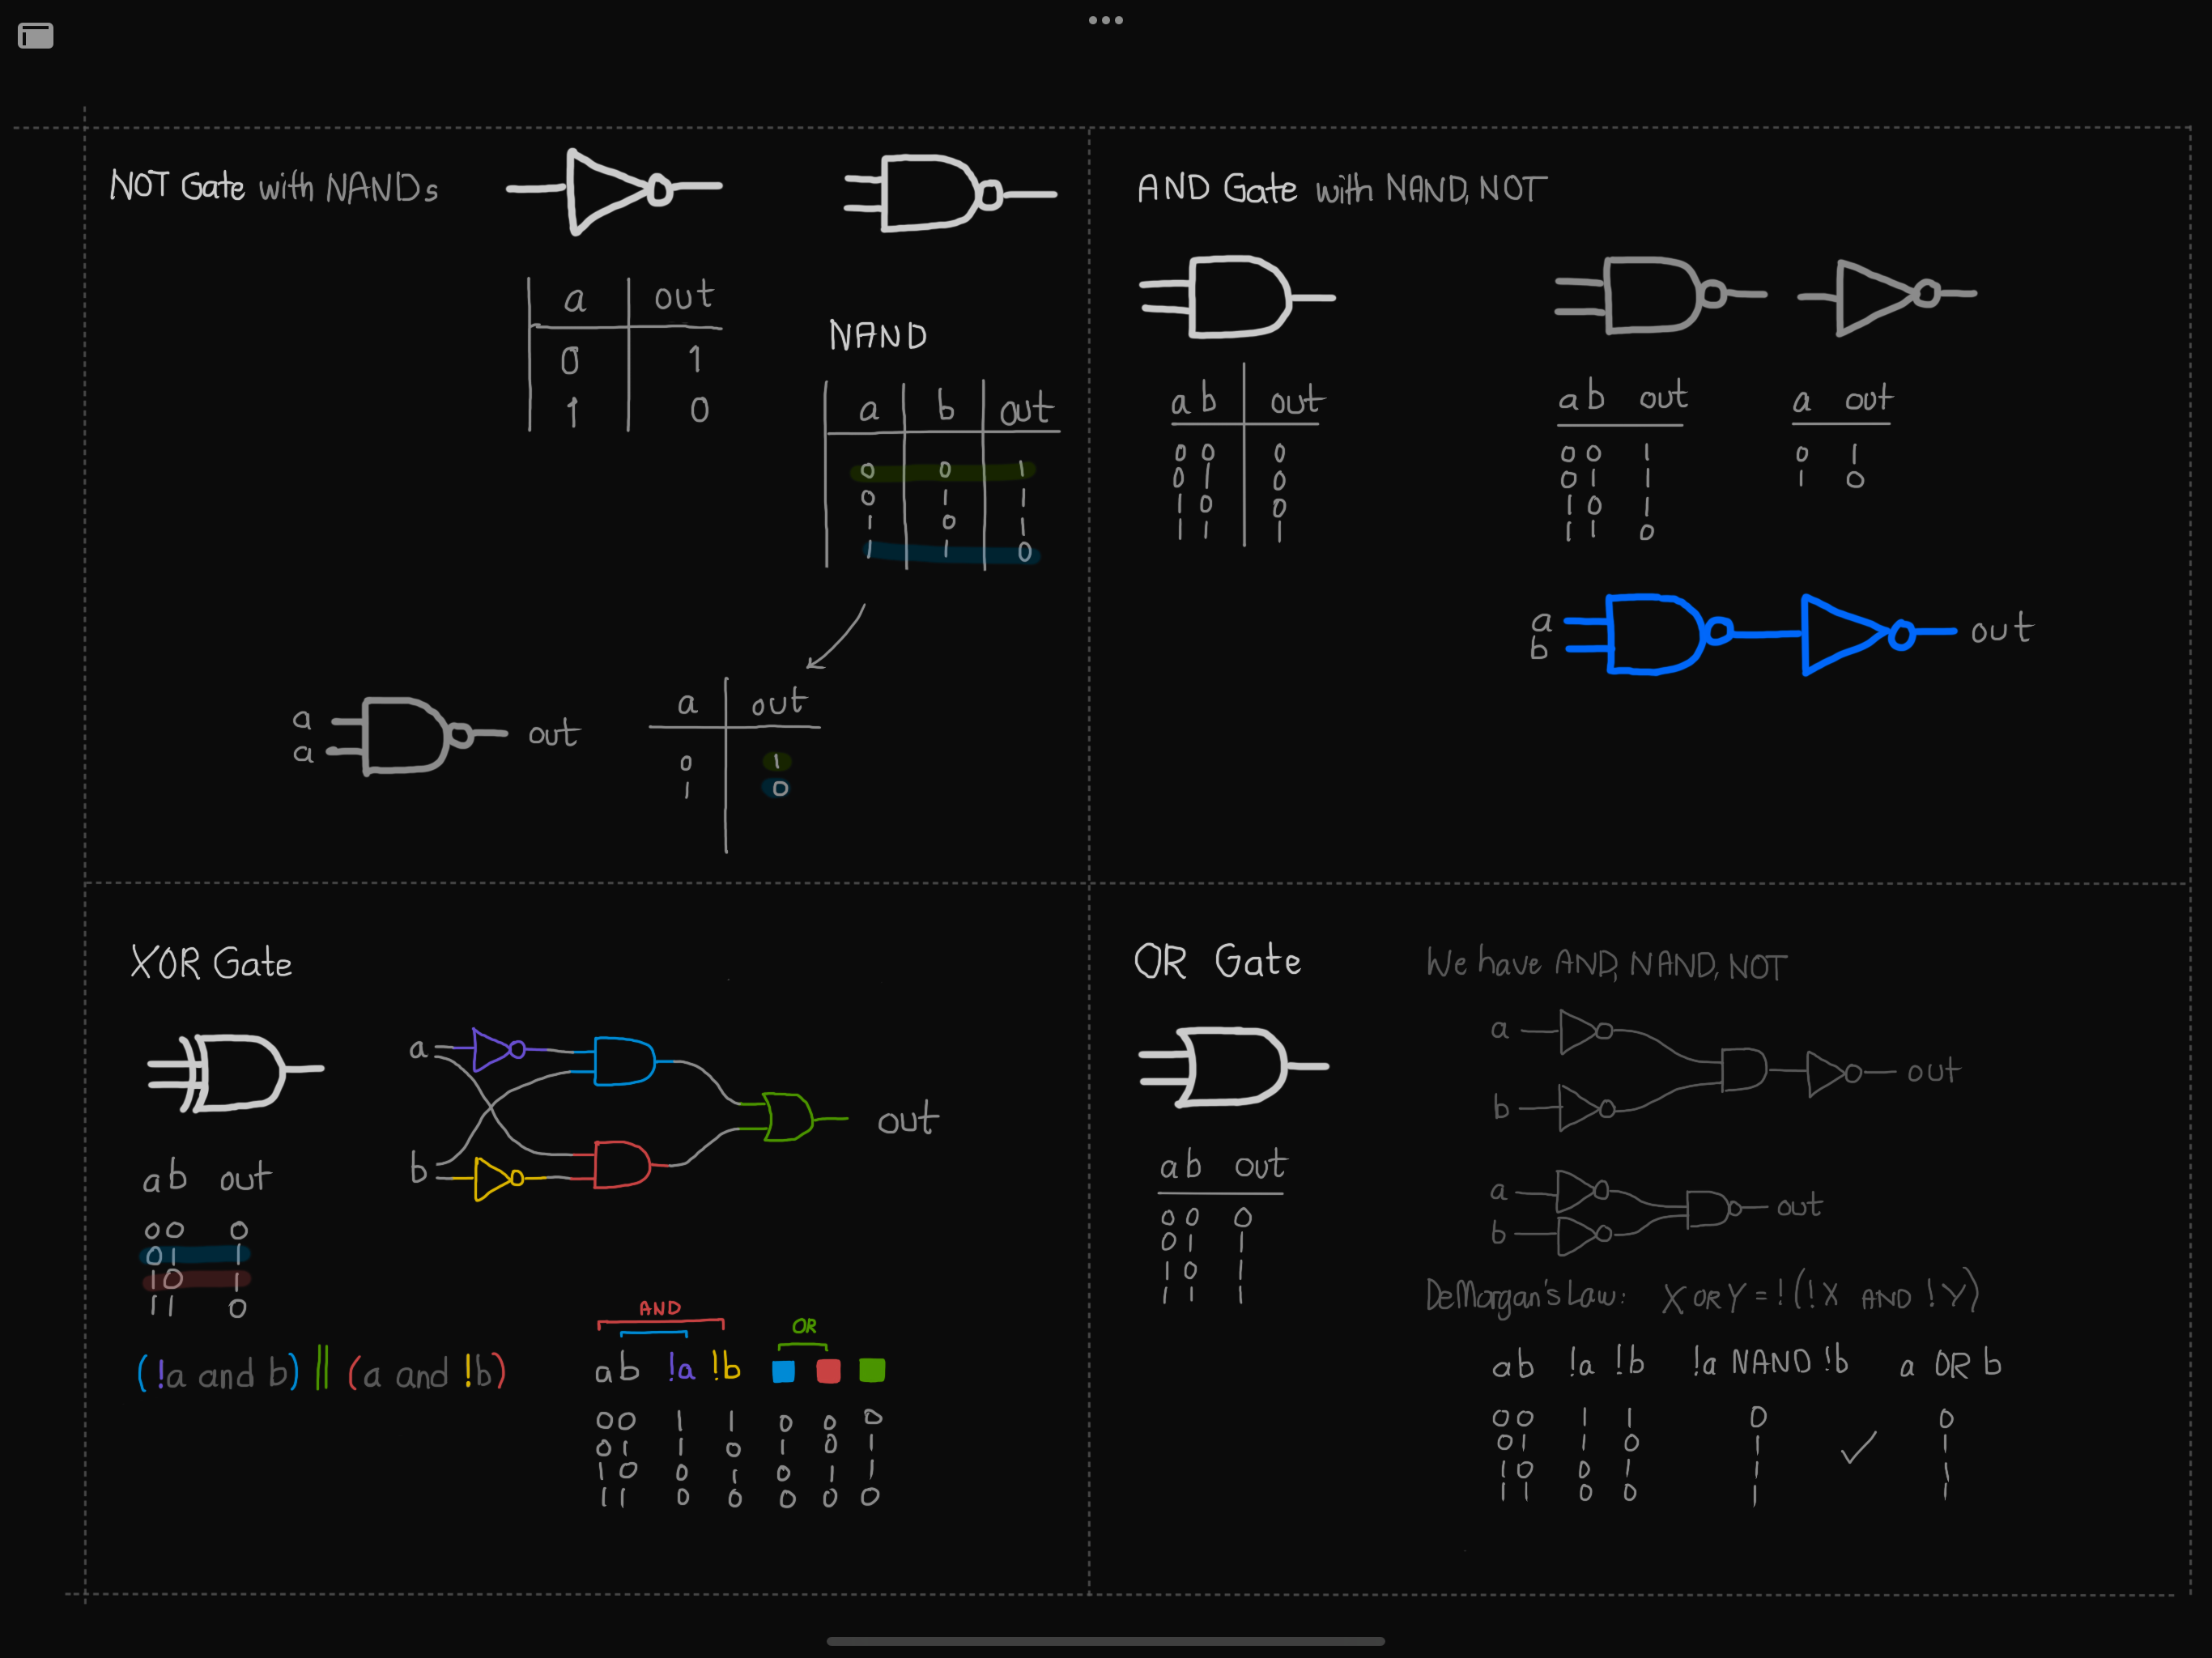 NOT Gate with NANDs
a out
0 1
1 0
NAND
a b out
0 0 1
0 1 1
1 0 1
1 1 0
a
a
out
a out
0 1
1 0
AND Gate with NAND, NOT
a b out
0 0 0
0 1 0
1 0 0
1 1 1
a b out
0 0 1
0 1 1
1 0 1
1 1 0
a out
0 1
1 0
a
b
out
XOR Gate
a
b
out
a b out
0 0 0
0 1 1
1 0 1
1 1 0
(!a and b) || (a and !b)
AND
OR
a b !a !b
0 0 1 1 0 0 0
0 1 1 0 1 0 1
1 0 0 1 0 1 1
1 1 0 0 0 0 0
OR Gate
a b out
0 0 0
0 1 1
1 0 1
1 1 1
We have AND, NAND, NOT
a
b
out
a
b
out
DeMorgan's Law: X OR Y = !(!X AND !Y)
a b !a !b !a NAND !b a OR b
0 0 1 1 0 0
0 1 1 0 1 1
1 0 0 1 1 1
1 1 0 0 1 1